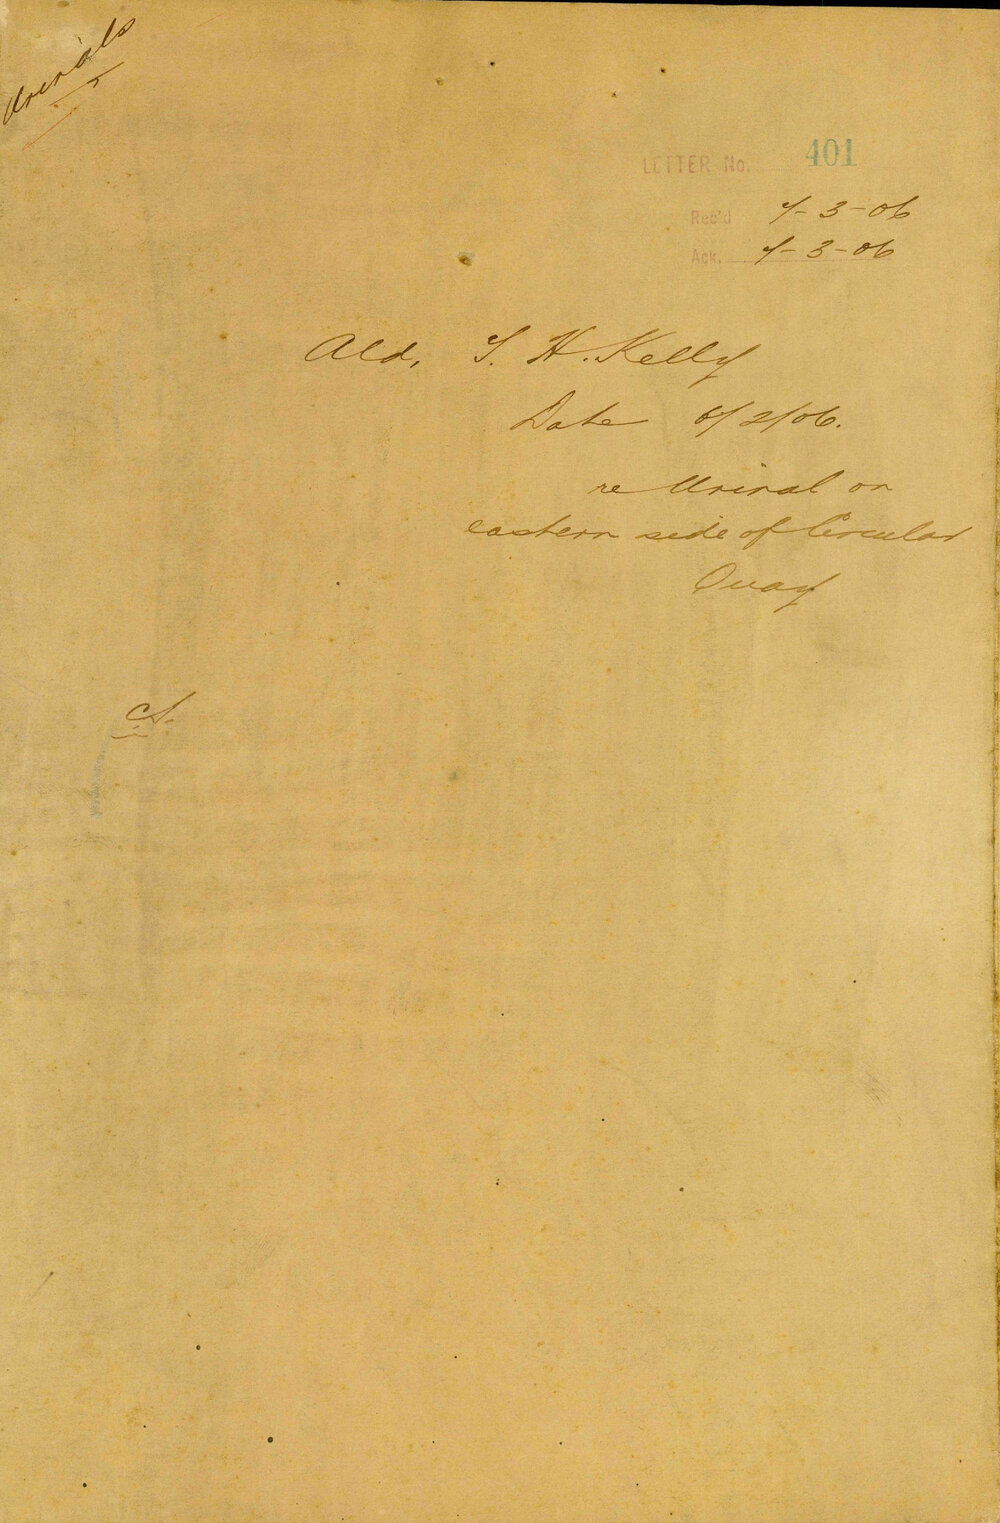 Urinals
LETTER No. 401
Rec'd 7-3-06
Ack. 7-3-06
Ald. T. H. Kelly
Date 6/2/06.
re Urinal on
eastern side of Circular
Quay